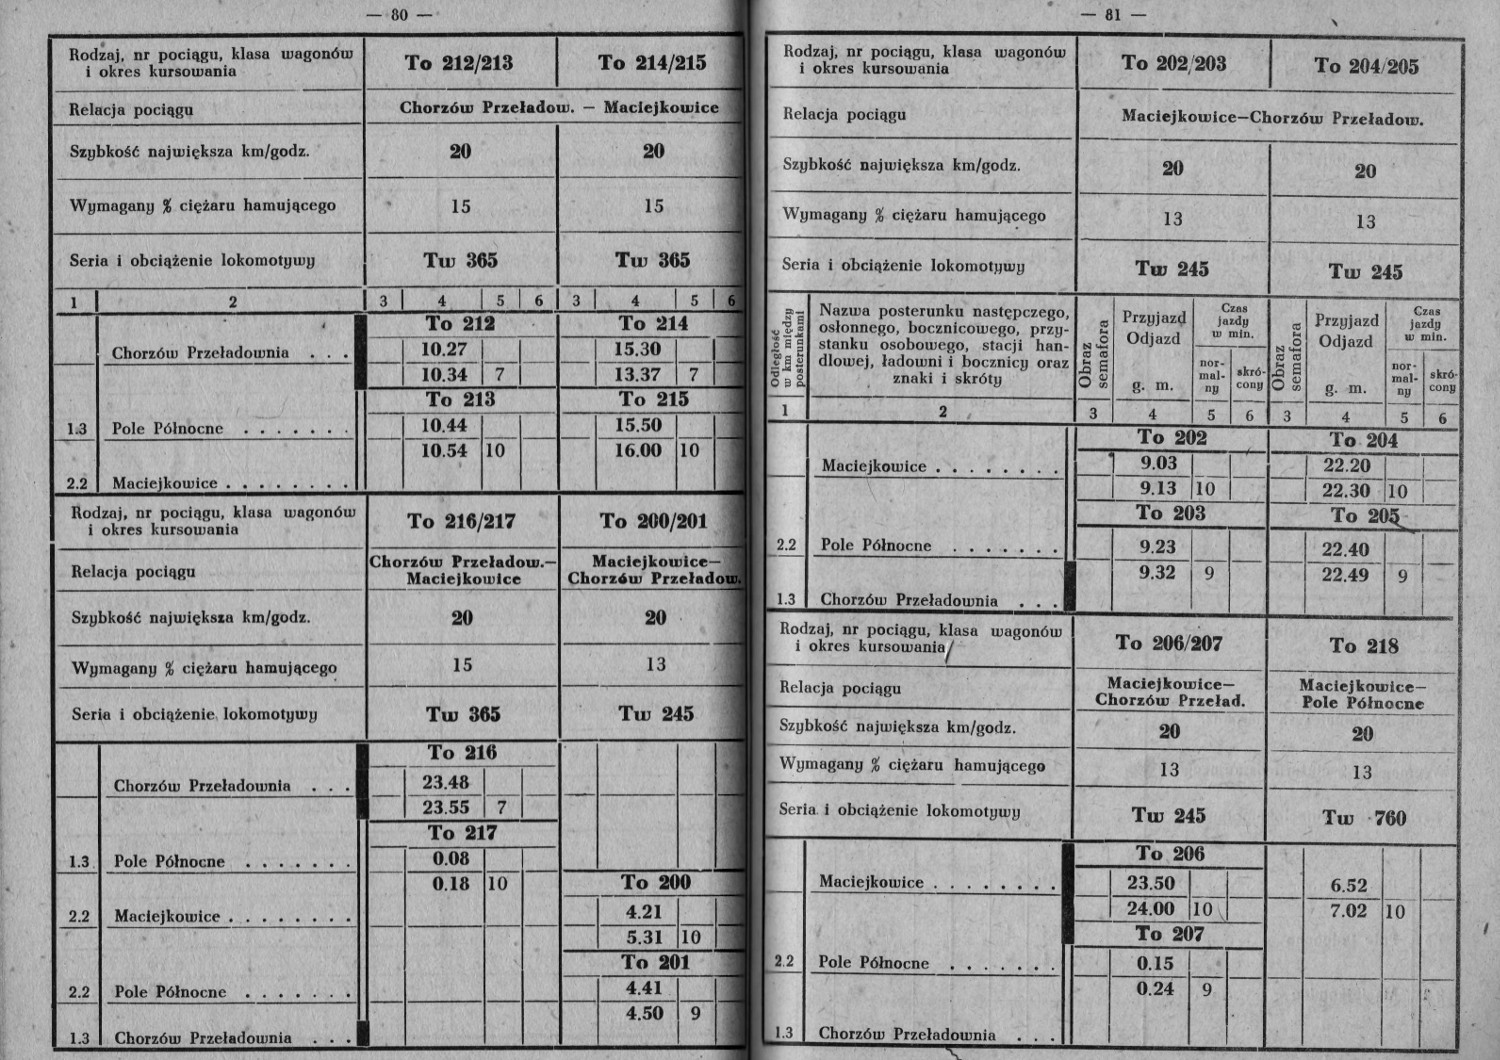 — 80 —
Rodzaj, nr pociągu, klasa wagonów
i okres kursowania
To 212/213 To 214/215
Relacja pociągu Chorzów Przeładow. – Maciejkowice
Szybkość największa km/godz. 20 20
Wymagany % ciężaru hamującego 15 15
Seria i obciążenie lokomotywy Tw 365 Tw 365
1 2 3 4 5 6 3 4 5 6
To 212 To 214
Chorzów Przeładownia . . . 10.27 15.30
10.34 7 13.37 7
To 213 To 215
1.3 Pole Północne . . . . . . . 10.44 15.50
10.54 10 16.00 10
2.2 Maciejkowice . . . . . . . .
Rodzaj, nr pociągu, klasa wagonów
i okres kursowania
To 216/217 To 200/201
Relacja pociągu
Chorzów Przeładow.– Maciejkowice–
Maciejkowice Chorzów Przeładow.
Szybkość największa km/godz. 20 20
Wymagany % ciężaru hamującego 15 13
Seria i obciążenie lokomotywy Tw 365 Tw 245
To 216
Chorzów Przeładownia . . . 23.48
23.55 7
To 217
1.3 Pole Północne . . . . . . . 0.08
0.18 10 To 200
2.2 Maciejkowice . . . . . . . . 4.21
5.31 10
To 201
2.2 Pole Północne . . . . . . . 4.41
4.50 9
1.3 Chorzów Przeładownia . . .
— 81 —
Rodzaj, nr pociągu, klasa wagonów
i okres kursowania
To 202/203 To 204/205
Relacja pociągu Maciejkowice–Chorzów Przeładow.
Szybkość największa km/godz. 20 20
Wymagany % ciężaru hamującego 13 13
Seria i obciążenie lokomotywy Tw 245 Tw 245
Odległość
w km między
posterunkami
Nazwa posterunku następczego,
osłonnego, bocznicowego, przy-
stanku osobowego, stacji han-
dlowej, ładowni i bocznicy oraz
znaki i skróty
Obraz
semafora
Przyjazd
Odjazd
g. m.
Czas
jazdy
w min.
nor-
mal-
ny
skró-
cony
Obraz
semafora
Przyjazd
Odjazd
g. m.
Czas
jazdy
w min.
nor-
mal-
ny
skró-
cony
1 2 3 4 5 6 3 4 5 6
To 202 To 204
Maciejkowice . . . . . . . . 9.03 22.20
9.13 10 22.30 10
To 203 To 205
2.2 Pole Północne . . . . . . . 9.23 22.40
9.32 9 22.49 9
1.3 Chorzów Przeładownia . . .
Rodzaj, nr pociągu, klasa wagonów
i okres kursowania
To 206/207 To 218
Relacja pociągu
Maciejkowice– Maciejkowice–
Chorzów Przeład. Pole Północne
Szybkość największa km/godz. 20 20
Wymagany % ciężaru hamującego 13 13
Seria i obciążenie lokomotywy Tw 245 Tw 760
To 206
Maciejkowice . . . . . . . . 23.50 6.52
24.00 10 7.02 10
To 207
2.2 Pole Północne . . . . . . . 0.15
0.24 9
1.3 Chorzów Przeładownia . . .